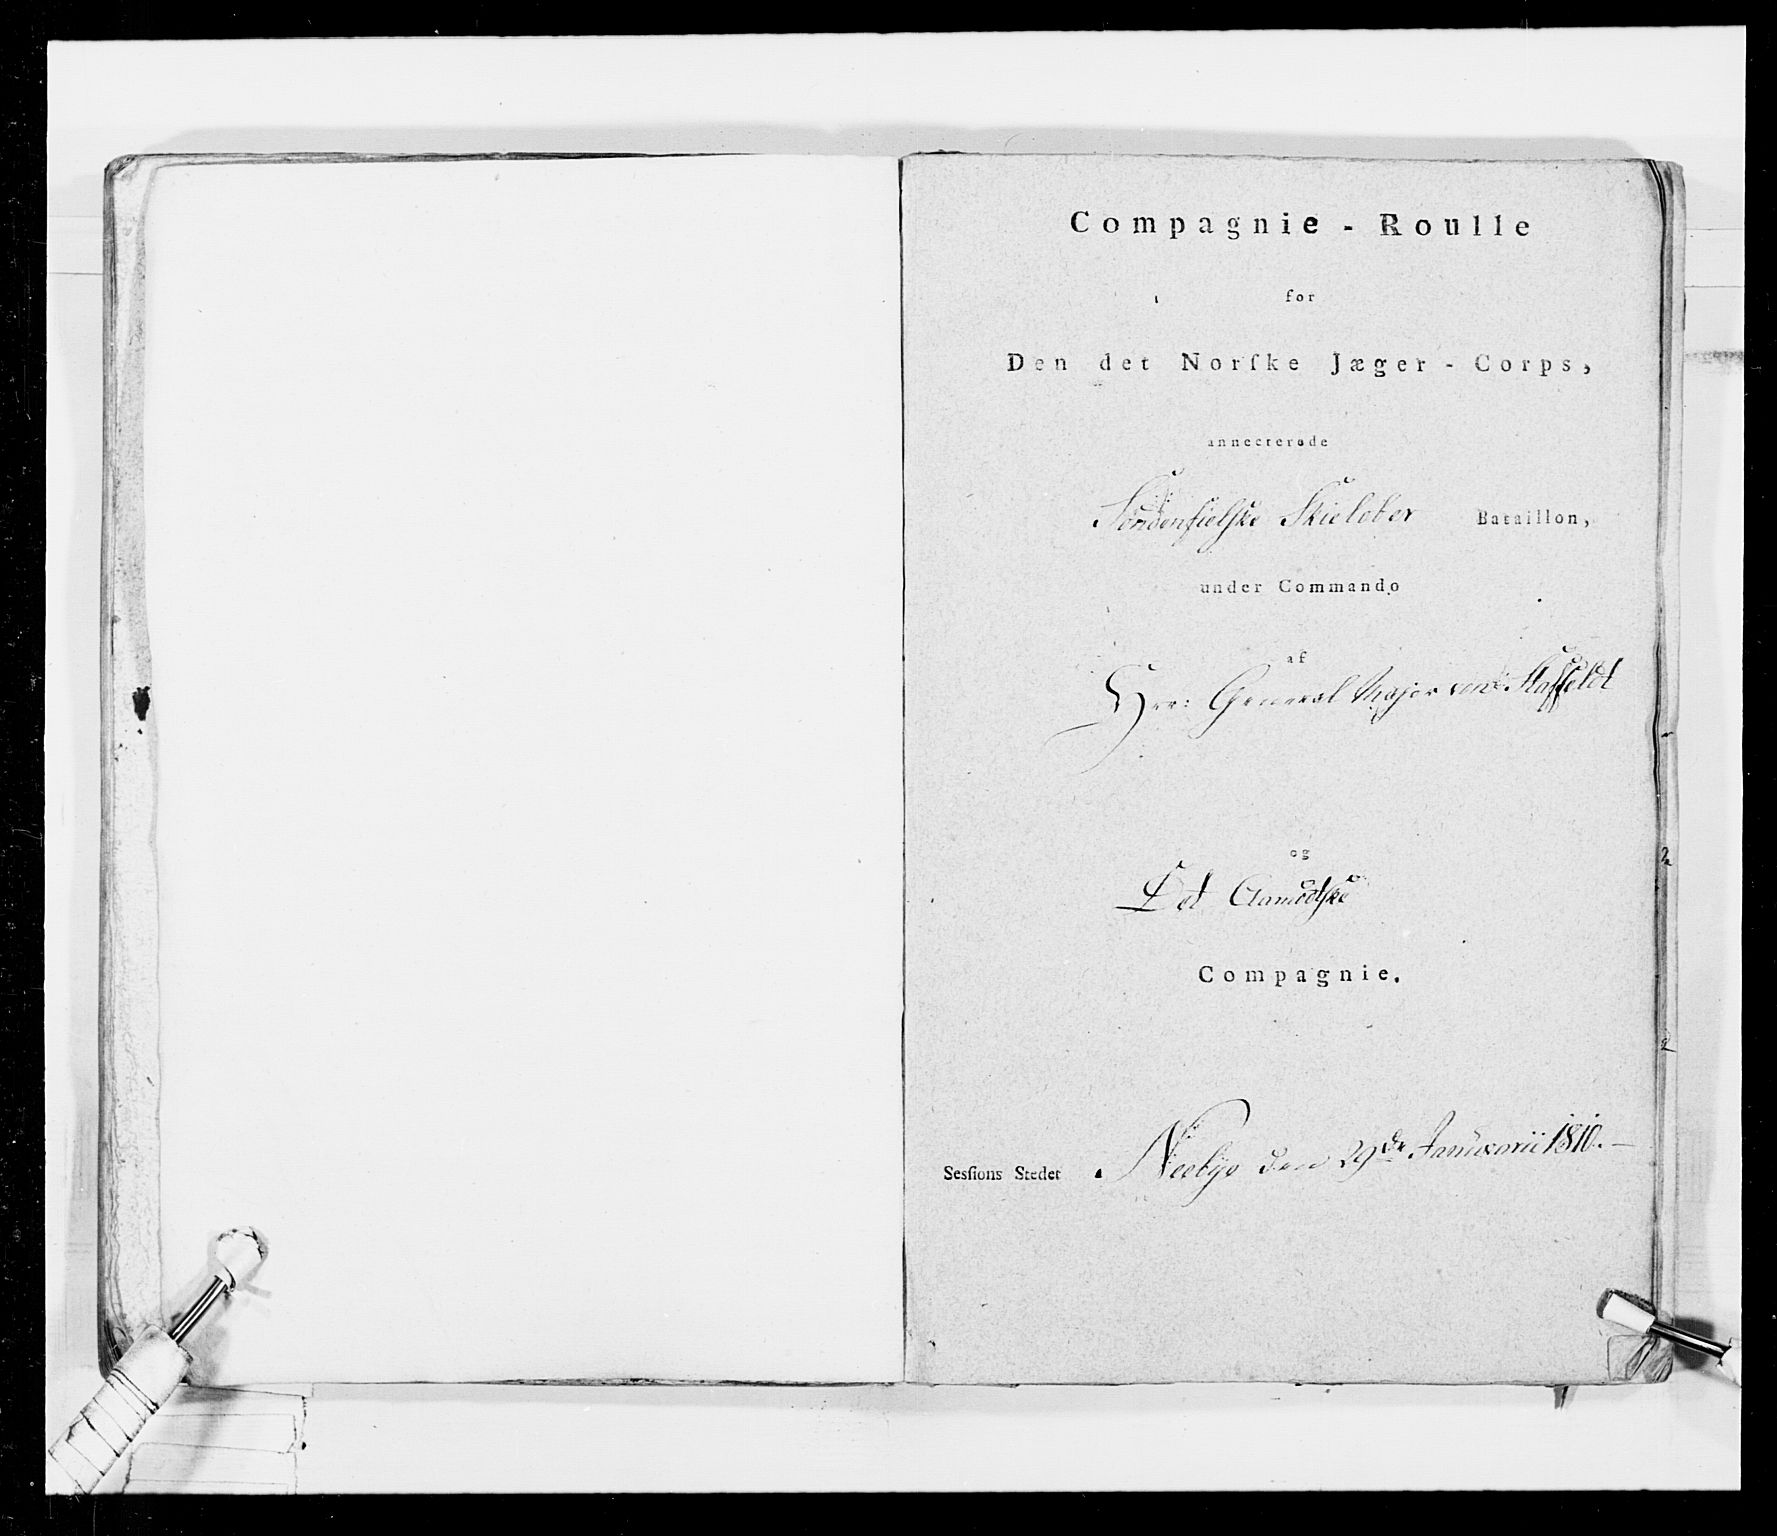 Compagnie - Roulle
for
Den det Norſke Jæger - Corps,
annecterede
Søndenfielske Skieløber Bataillon,
under Commando
af
Herr General Major von Staffeldt
og
Det Aamodtske
Compagnie.
Sesſions Stedet Neebye den 29de Januarii 1810. -